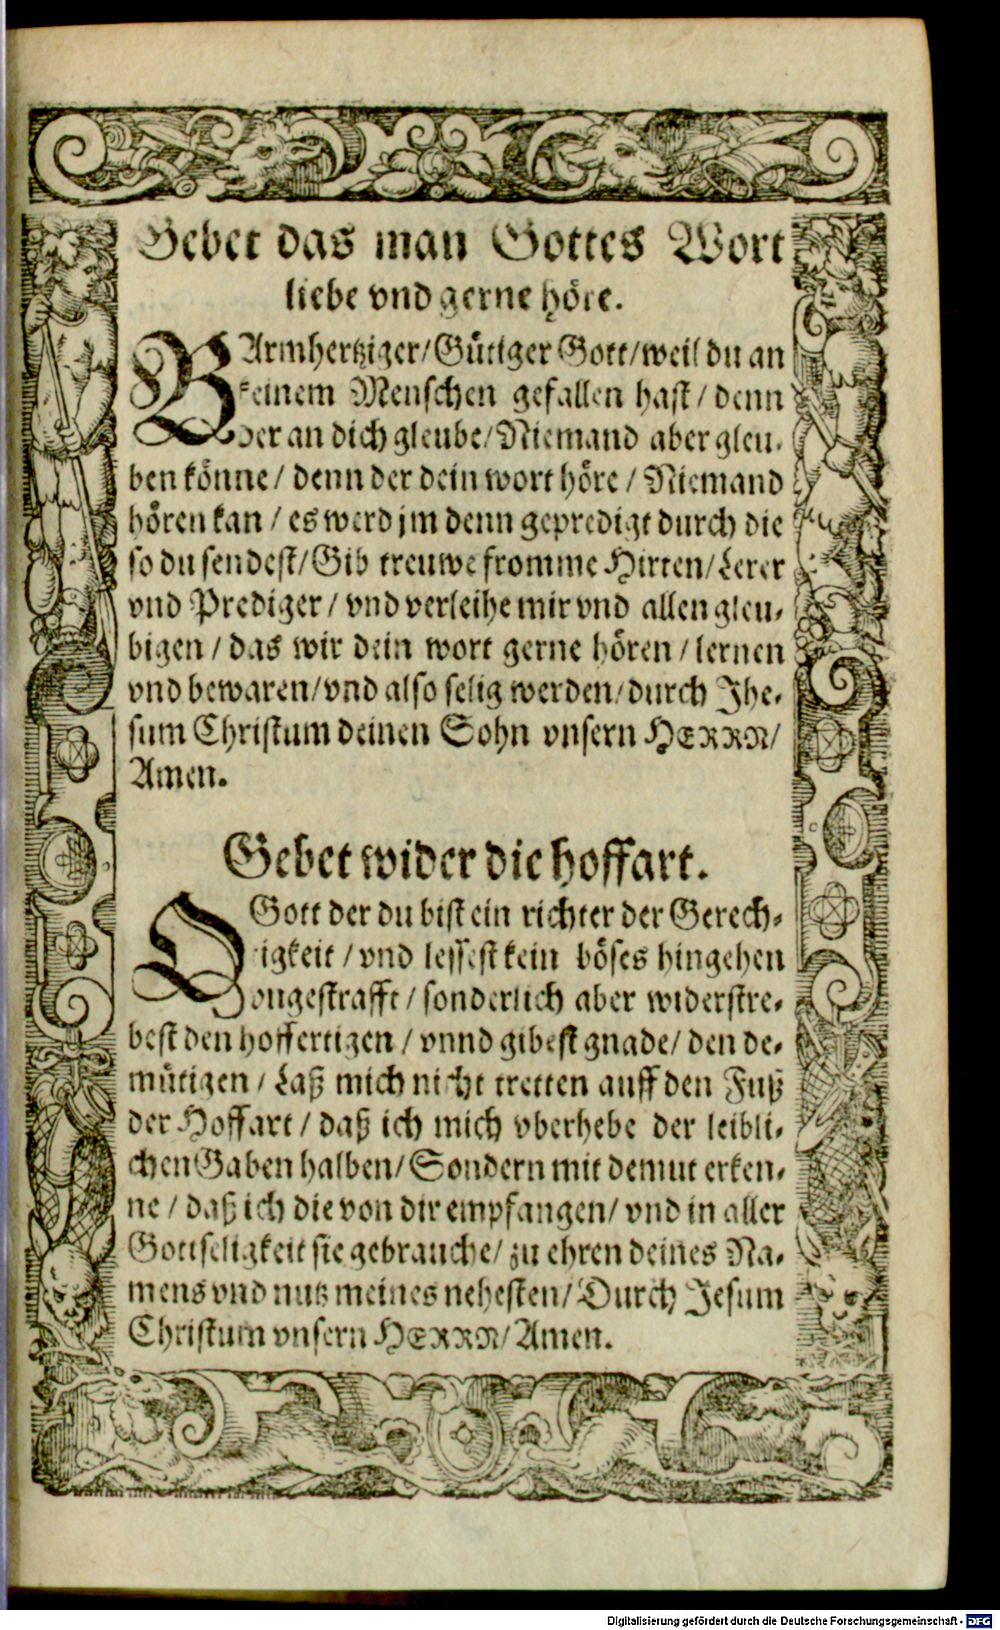 Gebet das man Gottes Wort
liebe vnd gerne höre.
BArmhertziger/Gütiger Gott/weil du an
keinem Menschen gefallen hast/ denn
der an dich gleube/Niemand aber gleu-
ben könne/ denn der dein wort höre/ Niemand
hören kan/ es werd jm denn gepredigt durch die
so du sendest/Gib treuwe fromme Hirten/Lerer
vnd Prediger/ vnd verleihe mir vnd allen gleu-
bigen/ das wir dein wort gerne hören/ lernen
vnd bewaren/vnd also selig werden/durch Jhe-
sum Christum deinen Sohn vnsern HERRN/
Amen.
Gebet wider die hoffart.
O Gott der du bist ein richter der Gerech-
tigkeit/ vnd lessest kein böses hingehen
vngestrafft/ sonderlich aber widerstre-
best den hoffertigen/ vnnd gibest gnade/ den de-
mütigen/ Laß mich nicht tretten auff den Fuß
der Hoffart/ daß ich mich vberhebe der leibli-
chen Gaben halben/Sondern mit demut erken-
ne/ daß ich die von dir empfangen/ vnd in aller
Gottseligkeit sie gebrauche/ zu ehren deines Na-
mens vnd nutz meines nehesten/Durch Jesum
Christum vnsern HERRN/Amen.
Digitalisierung gefördert durch die Deutsche Forschungsgemeinschaft - DFG